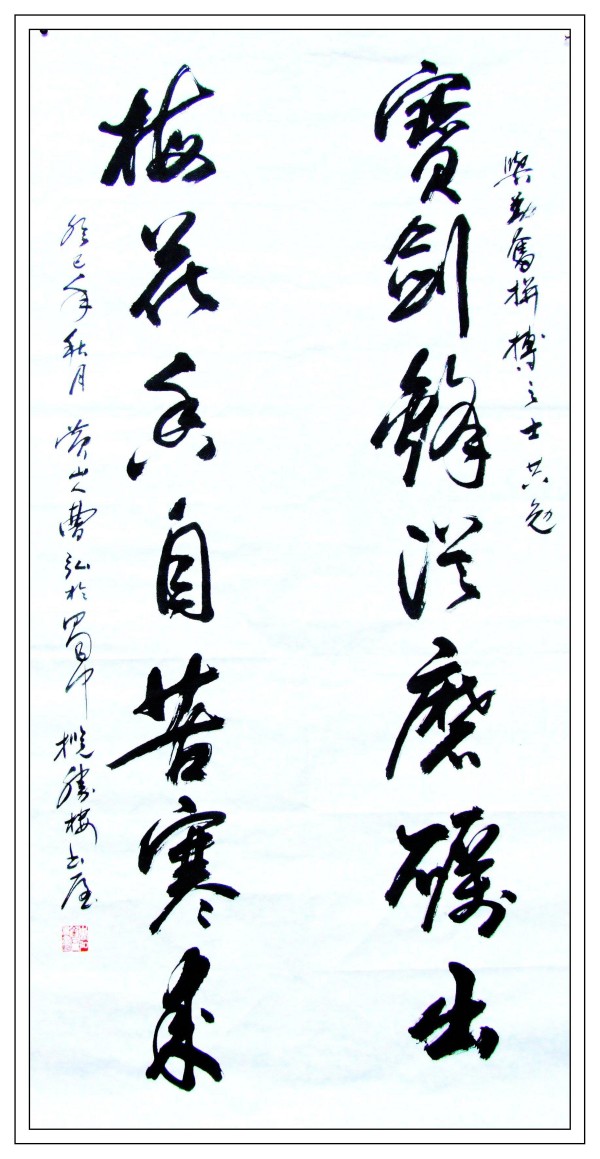 與勤奮拼搏之士共勉
寶劍鋒從磨礪出
梅花香自苦寒來
癸巳年秋月 黄山人曹弘於蜀中 攬勝樓書屋